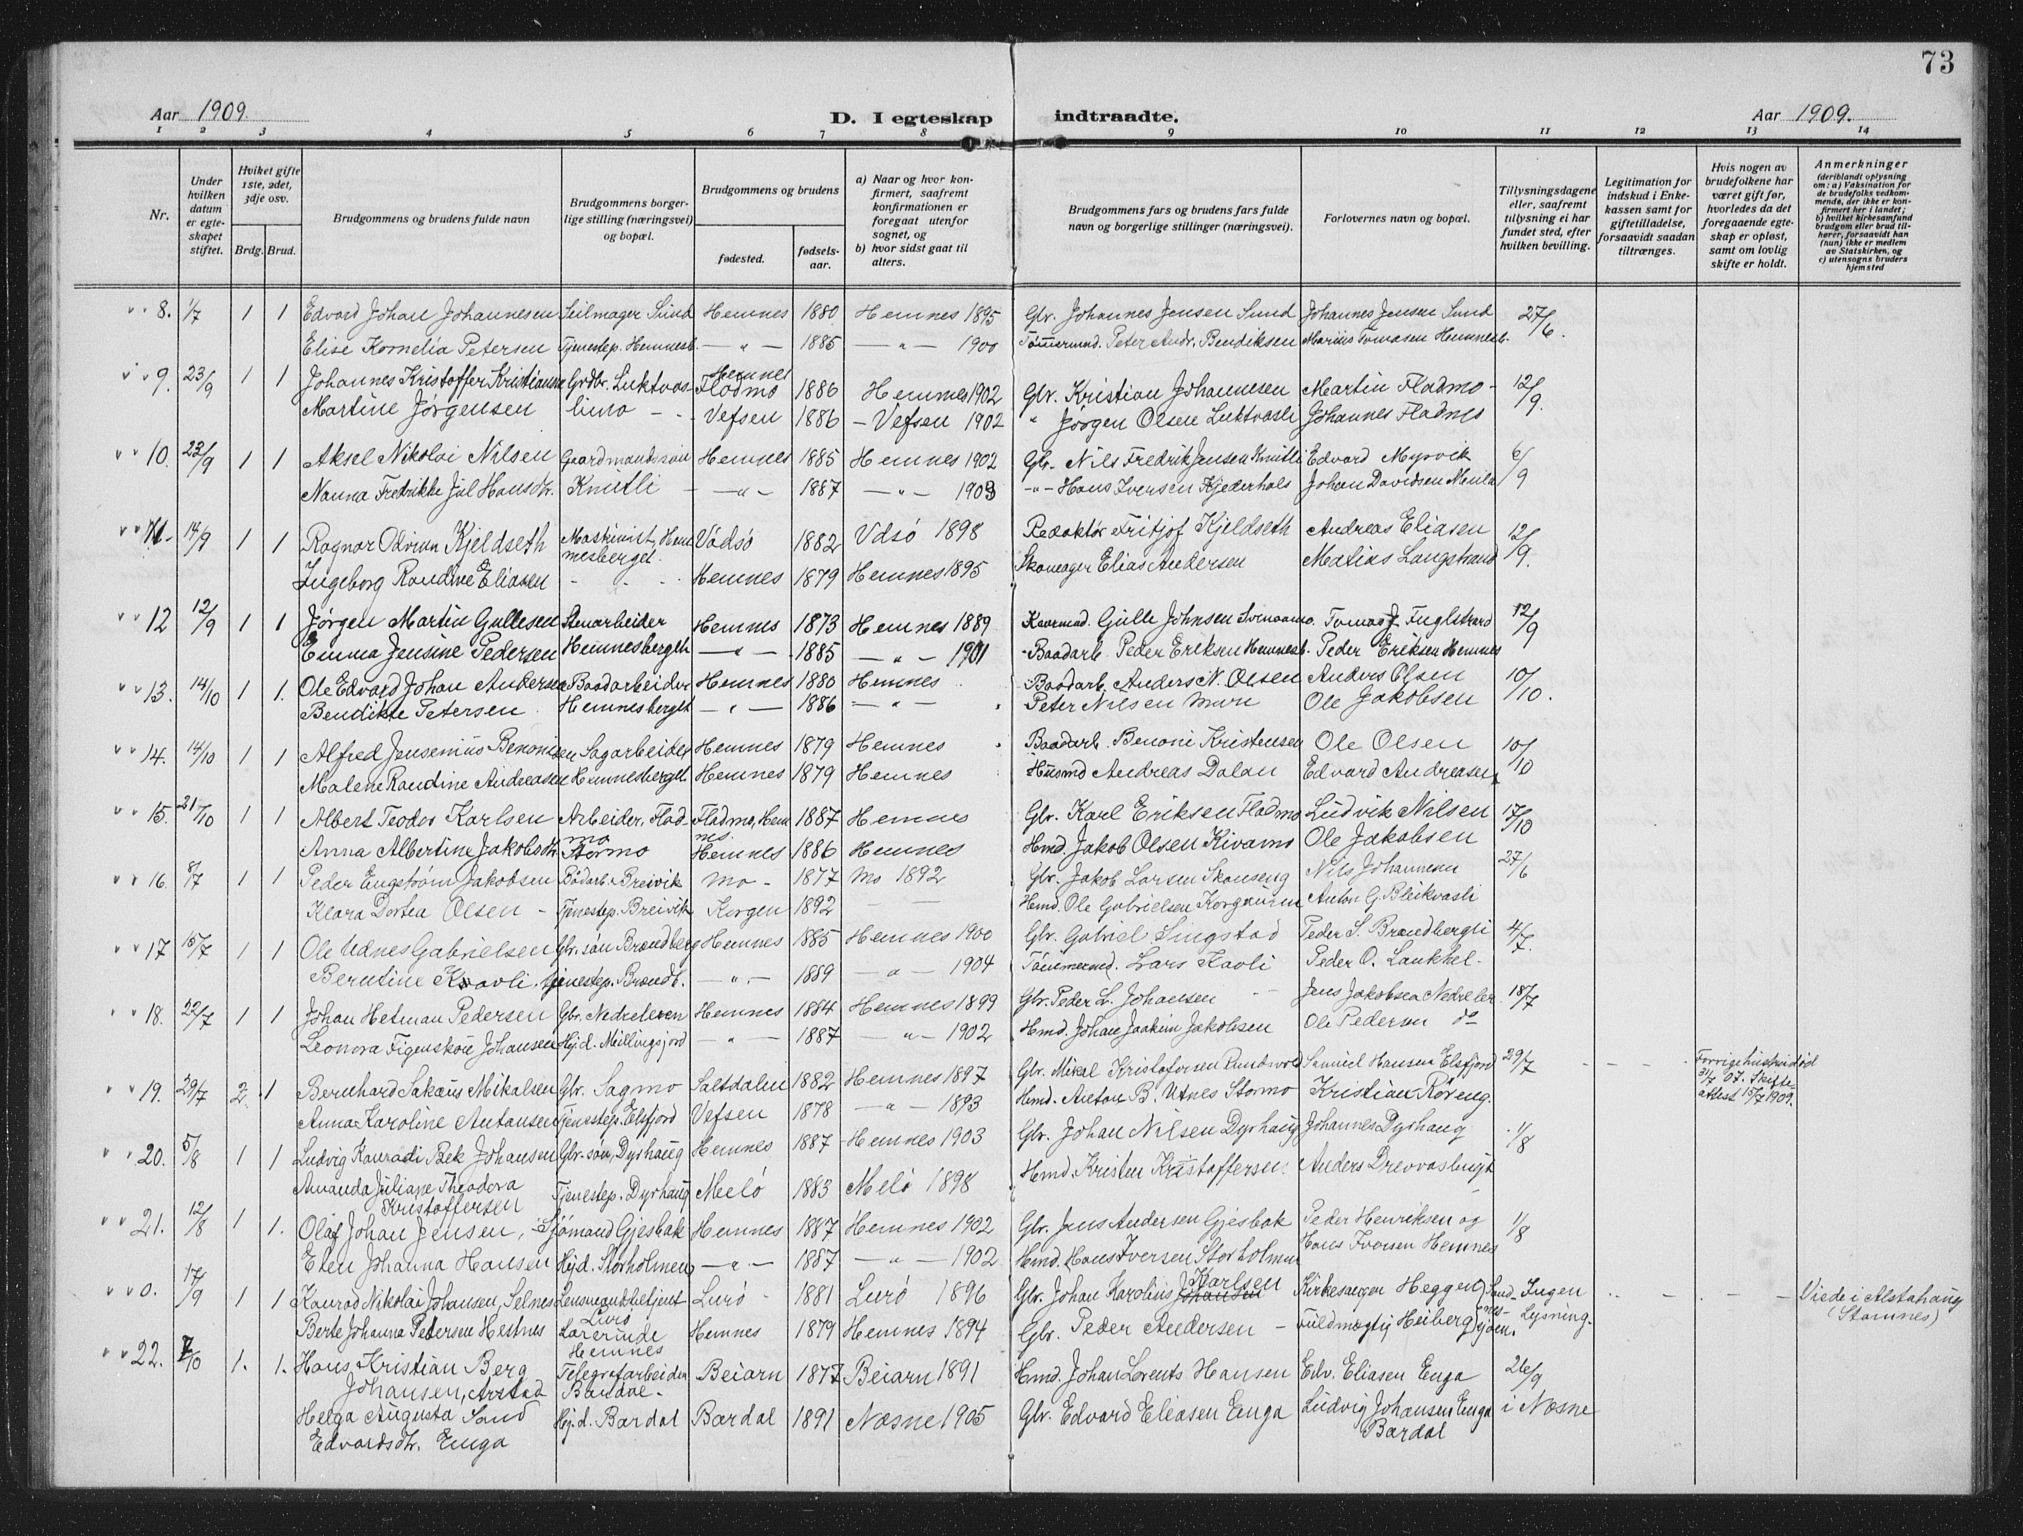 73
Aar 1909. D. I egteskap indtraadte. Aar 1909.
1 2 3 4 5 6 7 8 9 10 11 12 13 14
Nr.
Under hvilken datum er egteskapet stiftet.
Hviket gifte 1ste, 2det, 3dje osv.
Brdg. Brud.
Brudgommens og brudens fulde navn
Brudgommens borgerlige stilling (næringsvei) og bopæl.
Brudgommens og brudens
fødested.
fødselsaar.
a) Naar og hvor konfirmert, saafremt konfirmationen er foregaat utenfor sognet, og
b) hvor sidst gaat til alters.
Brudgommens fars og brudens fars fulde navn og borgerlige stillinger (næringsvei).
Forlovernes navn og bopæl.
Tillysningsdagene eller, saafremt tillysning ei har fundet sted, efter hvilken bevilling.
Legitimation for indskud i Enkekassen samt for giftetilladelse, forsaavidt saadan tiltrænges.
Hvis nogen av brudefolkene har været gift før, hvorledes da det foregaaende egteskap er opløst, samt om lovlig skifte er holdt.
Anmerkninger (deriblandt oplysning om: a) Vaksination for de brudefolks vedkommende, der ikke er konfirmert her i landet; b) hvilket kirkesamfund brudgom eller brud tilhører, forsaavidt han (hun) ikke er medlem av Statskirken, og c) utensogns bruders hjemsted
" " 8. 1/7 1 1 Edvard Johan Johannesen Seilmager Sund Hemnes 1880 Hemnes 1895 Gbr. Johannes Jensen Sund Johannes Jensen Sund 27/6.
Elise Kornelia Petersen Tjenestep. Hemnesb. — " — 1885 — " — 1900 Tømmermd. Peter Andr. Bendiksen Marius Tomasen Hemnesb.
" " 9. 23/9 1 1 Johannes Kristoffer Kristiansen Grdbr. Luktvas- Hemnes Fladmo 1886 Hemnes 1902 Gbr. Kristian Johannesen Martin Fladmo - 12/9.
Martine Jørgensen limo - - Vefsen 1886 - Vefsen 1902 " Jørgen Olsen Luktvasli Johannes Fladmo
" " 10. 23/9 1 1 Aksel Nikolai Nilsen Gaardmandssøn Hemnes 1885 Hemnes 1902 Gbr. Nils Fredrik Jensen Knutli Edvard Myrvik 6/9
Nanna Fredrikke Jul Hansdtr. Knutli — " — 1887 — " — 1903 — " — Hans Iversen Kjederhals Johan Davidsen
" " 11. 14/9 1 1 Ragnar Kjeldseth Maskinist, Hem Vadsø 1882 Vdsø 1898 Redaktør Fritjof Kjeldseth Andreas Eliasen 12/9.
Ingeborg Randine Eliasen nesberget. Hemnes 1879 Hemnes 1895 Skomager Elias Andersen Matias Langstrand
" " 12 12/9 1 1 Jørgen Martin Gullesen Stenarbeider Hemnes 1873 Hemnes 1889 Gulle Johnsen Tomas J. Fuglstrand 12/9
Emma Jensine Pedersen Hemnesberget — " — 1885 — " — 1901 Baadarb. Peder Eriksen Hemnesb. Peder Eriksen Hemnes
" " 13. 14/10 1 1. Ole Edvard Johan Andersen Baadarbeider Hemnes 1880 Hemnes Baadarb. Anders N. Olsen Anders Olsen 10/10.
Bendikte Petersen Hemnesberget — " — 1886 — " — Peter Nilsen Ole Jakobsen
" " 14. 14/10 1 1 Alfred Jensenius Benonisen Sagarbeider Hemnes 1879 Hemnes Baadarb. Benoni Kristensen Ole Olsen 10/10
Malene Randine Andreasen Hemnesberget Hemnes 1879 Hemnes Husmd Andreas Dalan Edvard Andreasen
" " 15. 21/10 1 1 Albert Teodor Karlsen Arbeider, Flad Fladmo, Hem 1887 Hemnes Gbr. Karl Eriksen Fladmo Ludvik Nilsen 17/10
mo nes.
Anna Albertine Jakobsdtr. Stormo Hemnes 1886 Hemnes Hmd. Jakob Olsen Kivamo Ole Jakobsen
" " 16. 8/7 1 1 Peder Engstrøm Jakobsen Bådarb. Breivik Mo - 1877 Mo 1892 Gbr. Jakob Larsen Skonseng Nils Johannesen 27/6
Klara Dortea Olsen - Tjenestep. Breivik Korgen 1892 — — Hmd. Ole Gabrielsen Anton G. Bleikvasli
" " 17 15/7 1 1 Ole Utnes Gabrielsen Gbr. søn Brandberg Hemnes 1885 Hemnes 1900 Gbr. Gabriel Singstad Peder S. Brandbergli 4/7.
Berntine Kravli. Tjenestep. Brandb. — " — 1889 — " — 1904 Tømmermd. Lars Kavli Peder O. Laukhel.
" " 18. 22/7 1 1 Johan Hetman Pedersen Gbr. Nedreleren Hemnes 1884 Hemnes 1899 Gbr. Peder L. Johansen Jens Jakobsen Nedreler 18/7
Leonora Figenskou Johansen Hjd. Millingsjord — " — 1887 — " — 1902 Hmd. Johan Joakim Jakobsen Ole Pedersen do
" " 19. 29/7 2 1 Bernhard Sakæus Mikalsen Gbr. Sagmo Saltdalen 1882 Hemnes 1897 Gbr. Mikal Kristofersen Rundvold Samuel Hansen Elsfjord 29/7 — — — Forrige hustru død 31/7 07. Skifteattest 15/7 1909.
Anna Karoline Antonsen Tjenestep. Elsfjord Vefsen 1878 — " — 1893 Hmd. Anton B. Utnes Stormo Kristian Røreng.
" " 20. 5/8 1 1 Ludvig Konradi Bek Johansen Gbr. søn, Dyrhaug Hemnes 1887 Hemnes 1903 Gbr. Johan Nilsen Dyrhaug Johannes Dyrhaug 1/8
Amanda Juliane Theodora Kristoffersen Tjenestep. Dyrhaug Melø 1883 Melø 1898 Hmd. Kristen Kristoffersen. Anders Drevvasbugt
" " 21. 12/8 1 1. Olaf Johan Jensen, Sjømand Gjesbak Hemnes 1887 Hemnes 1902 Gbr. Jens Andersen Gjesbak Peder Henriksen og 1/8
Elen Johanna Hansen Hjd. Storholmen — " — 1887 — " — 1902 Hmd. Hans Iversen Storholmen Hans Iversen Hemnes
" " 0. 17/9 1 1 Konrad Nikolai Johansen, Selnes Lensmandsbetjent Lurø Lurø - 1881 Lurø 1896 Gbr. Johan Karolius Johansen Karlsen Kirkesanger Heggen Sandnessjøen. Ingen Lysning. — — — Viede i Alstahaug (Stamnes)
Berte Johanna Petersen Hestnes Lærerinde Hemnes Hemnes 1879 Hemnes 1894 Gbr. Peder Andersen - Fuldmægtig Heiberg
" " 22. 7/10 1. 1. Hans Kristian Berg Johansen, Arstad Telegrafarbeider Bardal. Beiarn 1877 Beiarn 1891 Hmd. Johan Lorents Hansen Edv. Eliasen Enga 26/9
Helga Augusta Sand Edvardsdtr. Enga Hjd. Bardal Bardal 1891 Næsne 1905 Gbr. Edvard Eliasen Enga Ludvig Johansen Enga Bardal i Næsne